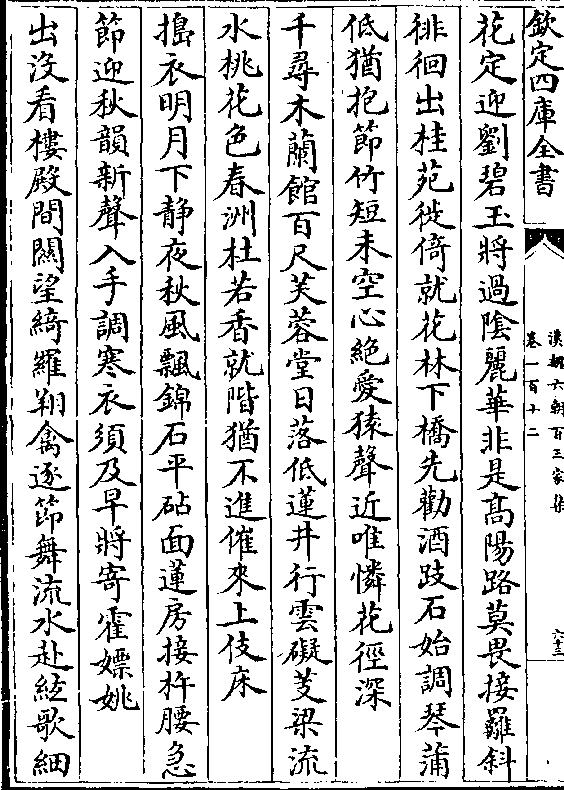 欽定四庫全書
漢魏六朝百三家集
卷一百十二
六十三
花定迎劉碧玉將過隂麗華非是髙陽路莫畏接䍦斜
徘徊出桂苑徙倚就花林下橋先勸酒跂石始調琴蒲
低猶抱節竹短未空心絶愛猿聲近唯憐花徑深
千尋木蘭館百尺芙蓉堂日落低蓮井行雲礙芰梁流
水桃花色春洲杜若香就階猶不進催來上伎床
搗衣明月下静夜秋風飄錦石平砧面蓮房接杵腰急
節迎秋韻新聲入手調寒衣須及早將寄霍嫖姚
出没看樓殿間闗望綺羅翔禽逐節舞流水赴絃歌細